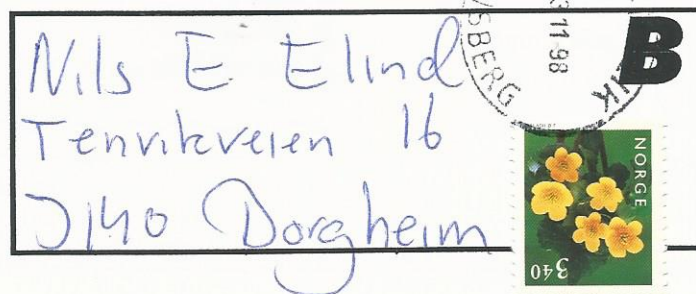 Nils E. Elind
Tenvikveien 16
3140 Borgheim
B
11-98
SBERG
NORGE
340